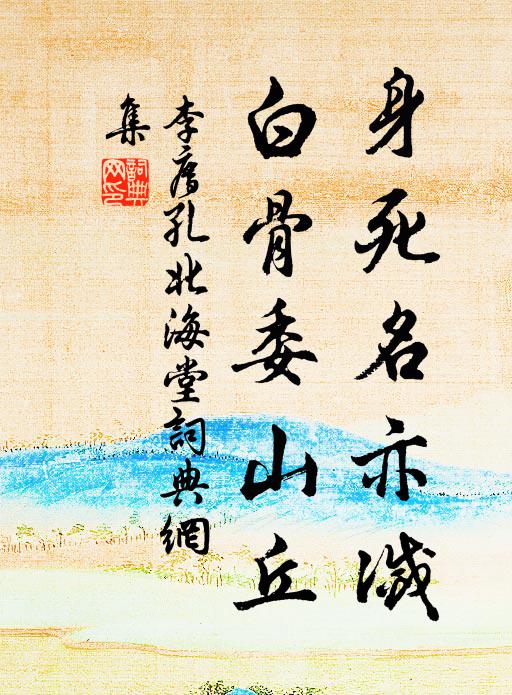 身死名亦滅
白骨委山丘
李廌孔北海堂詞典網
集
詞典
网印